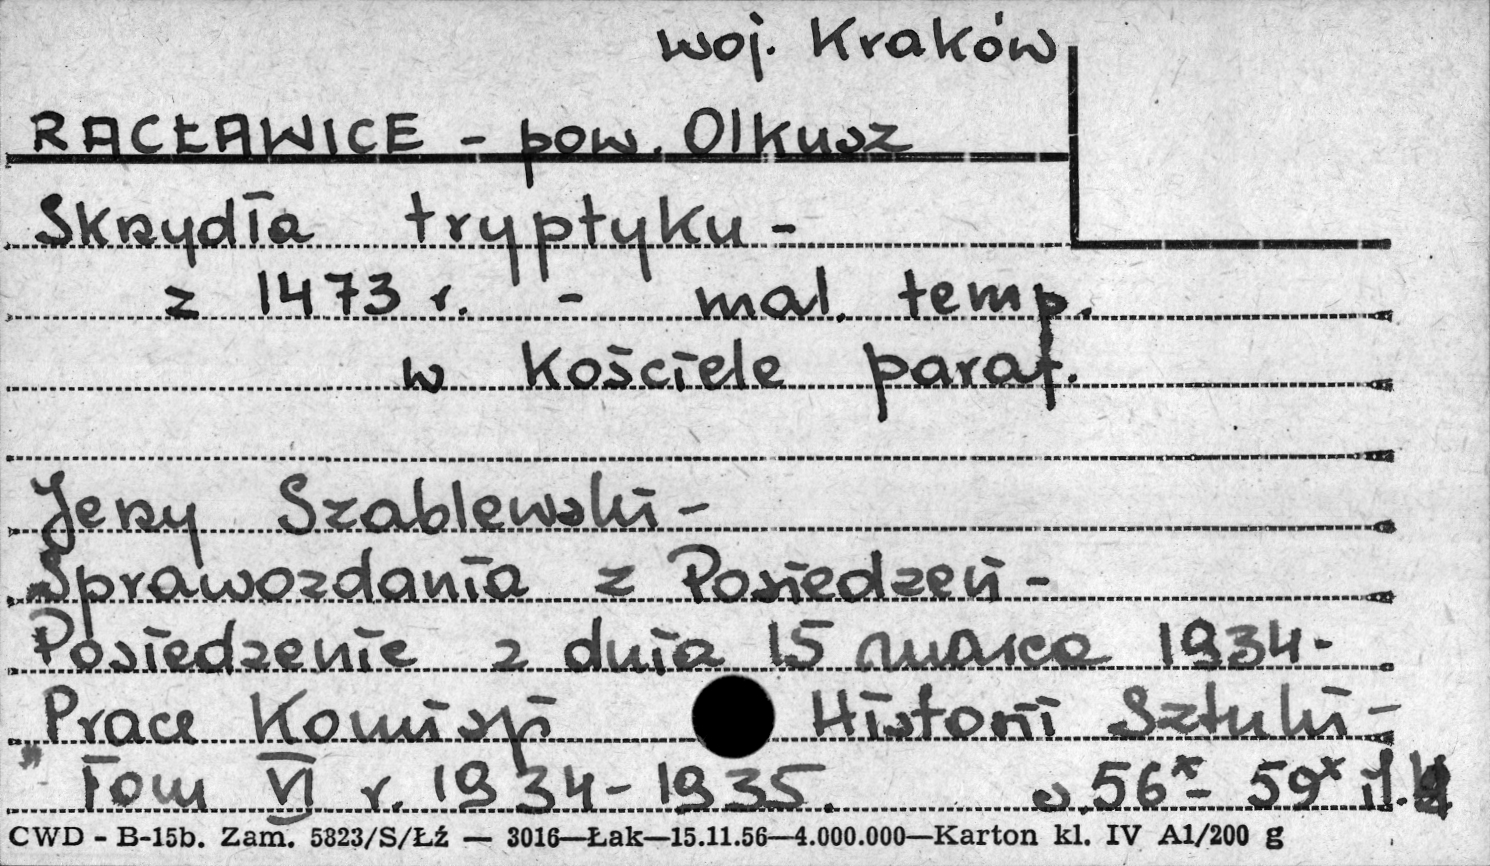 woj. Kraków
RACŁAWICE - pow. Olkusz
Skrzydła tryptyku -
z 1473 r. - mal. temp.
w Kościele paraf.
Jerzy Szablewski -
Sprawozdania z Posiedzeń -
Posiedzenie z dnia 15 marca 1934 -
Prace Komisji Historii Sztuki -
" Tom VI r. 1934-1935. s. 56x - 59x il.
CWD - B-15b. Zam. 5823/S/Łź — 3016—Łak—15.11.56—4.000.000—Karton kl. IV A1/200 g